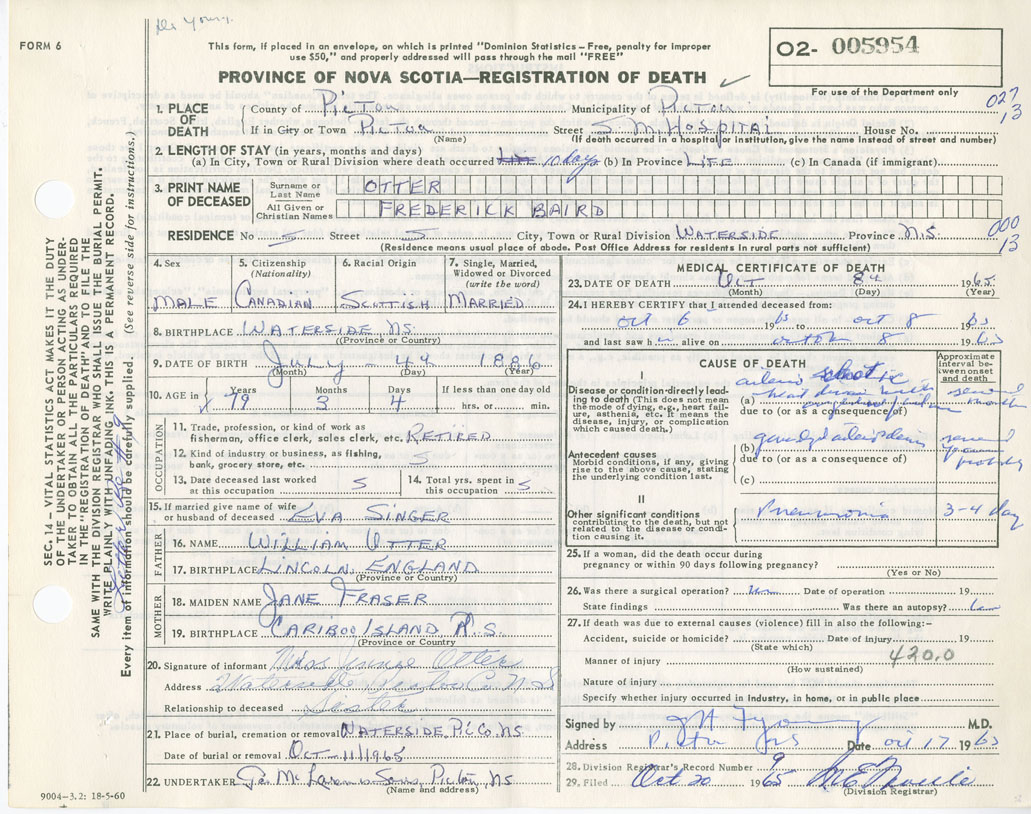 Dr Young.
FORM 6
This form, if placed in an envelope, on which is printed "Dominion Statistics – Free, penalty for improper
use $50," and properly addressed will pass through the mail "FREE"
PROVINCE OF NOVA SCOTIA—REGISTRATION OF DEATH
O2- 005954
For use of the Department only
027
13
1. PLACE OF DEATH
County of Pictou Municipality of Pictou
If in City or Town Pictou Street S. M. Hospital House No.
(Name) (If death occurred in a hospital or institution, give the name instead of street and number)
2. LENGTH OF STAY (in years, months and days)
(a) In City, Town or Rural Division where death occurred 10 days (b) In Province LIFE (c) In Canada (if immigrant)
3. PRINT NAME OF DECEASED
Surname or Last Name OTTER
All Given or Christian Names FREDERICK BAIRD
RESIDENCE No Street City, Town or Rural Division WATERSIDE Province N.S.
000
13
(Residence means usual place of abode. Post Office Address for residents in rural parts not sufficient)
4. Sex MALE
5. Citizenship (Nationality) CANADIAN
6. Racial Origin SCOTTISH
7. Single, Married, Widowed or Divorced (write the word) MARRIED
8. BIRTHPLACE WATERSIDE NS.
(Province or Country)
9. DATE OF BIRTH July 4th 1886
(Month) (Day) (Year)
10. AGE in Years 79 Months 3 Days 4 If less than one day old hrs. or min.
OCCUPATION
11. Trade, profession, or kind of work as
fisherman, office clerk, sales clerk, etc. RETIRED
12. Kind of industry or business, as fishing,
bank, grocery store, etc.
13. Date deceased last worked at this occupation
14. Total yrs. spent in this occupation
15. If married give name of wife or husband of deceased EVA SINGER
FATHER
16. NAME WILLIAM OTTER
17. BIRTHPLACE LINCOLN, ENGLAND
(Province or Country)
MOTHER
18. MAIDEN NAME JANE FRASER
19. BIRTHPLACE CARIBOO ISLAND N.S.
(Province or Country)
20. Signature of informant Miss Otter
Address Waterside Pictou Co. N S
Relationship to deceased Sister
21. Place of burial, cremation or removal WATERSIDE, PIC CO, NS
Date of burial or removal OCT - 11/1965
22. UNDERTAKER Sons, Pictou, NS
(Name and address)
9004–3.2: 18-5-60
MEDICAL CERTIFICATE OF DEATH
23. DATE OF DEATH Oct 8th 1965
(Month) (Day) (Year)
24. I HEREBY CERTIFY that I attended deceased from:
Oct 6 1965 to Oct 8 1965
and last saw h alive on October 8 1965
CAUSE OF DEATH
Approximate interval between onset and death
I
Disease or condition directly leading to death (This does not mean the mode of dying, e.g., heart failure, asthenia, etc. It means the disease, injury, or complication which caused death.)
(a) heart disease with
due to (or as a consequence of)
several months
Antecedent causes
Morbid conditions, if any, giving rise to the above cause, stating the underlying condition last.
(b)
due to (or as a consequence of)
several
(c)
II
Other significant conditions
contributing to the death, but not related to the disease or condition causing it.
Pneumonia 3-4 day
25. If a woman, did the death occur during
pregnancy or within 90 days following pregnancy?
(Yes or No)
26. Was there a surgical operation? Date of operation 19
State findings Was there an autopsy?
27. If death was due to external causes (violence) fill in also the following:–
Accident, suicide or homicide? Date of injury 19
(State which)
Manner of injury 420.0
(How sustained)
Nature of injury
Specify whether injury occurred in industry, in home, or in public place
Signed by Young M.D.
Address Pictou NS Date Oct 17 1965
28. Division Registrar's Record Number 9
29. Filed Oct 20 1965
(Division Registrar)
SEC. 14 – VITAL STATISTICS ACT MAKES IT THE DUTY
OF THE UNDERTAKER OR PERSON ACTING AS UNDER-
TAKER TO OBTAIN ALL THE PARTICULARS REQUIRED
IN THE "REGISTRATION OF DEATH" AND TO FILE THE
SAME WITH THE DIVISION REGISTRAR WHO SHALL ISSUE THE BURIAL PERMIT.
WRITE PLAINLY WITH UNFADING INK. THIS IS A PERMANENT RECORD.
Every item of information should be carefully supplied. (See reverse side for instructions.)